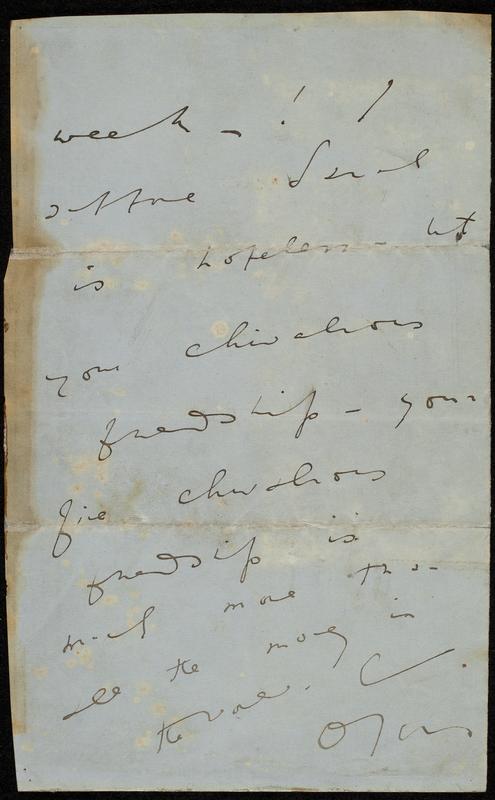 week - !
is hopeless - but
your chivalrous
friendship - your
fine chivalrous
friendship is
more than
all the money in
the world.
Oscar